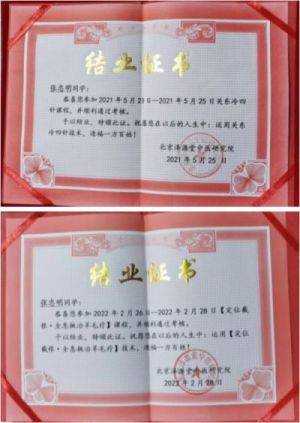 结业证书
张忠明同学：
恭喜您参加2021年5月23日—2021年5月25日关东冷
针课程，并顺利通过考核。
予以结业，特颁此证。祝愿您在以后的人生中：运用关东
冷四针技术，造福一方百姓！
北京泽源堂中医研究院
2021年5月25日
结业证书
张忠明同学：
恭喜您参加2022年2月26日—2022年2月28日【定位截
根·全息概治羊毛疗】课程，并顺利通过考核。
予以结业，特颁此证。祝愿您在以后的人生中：运用【定位
截根·全息概治羊毛疗】技术，造福一方百姓！
北京泽源堂中医研究院
2022年2月28日